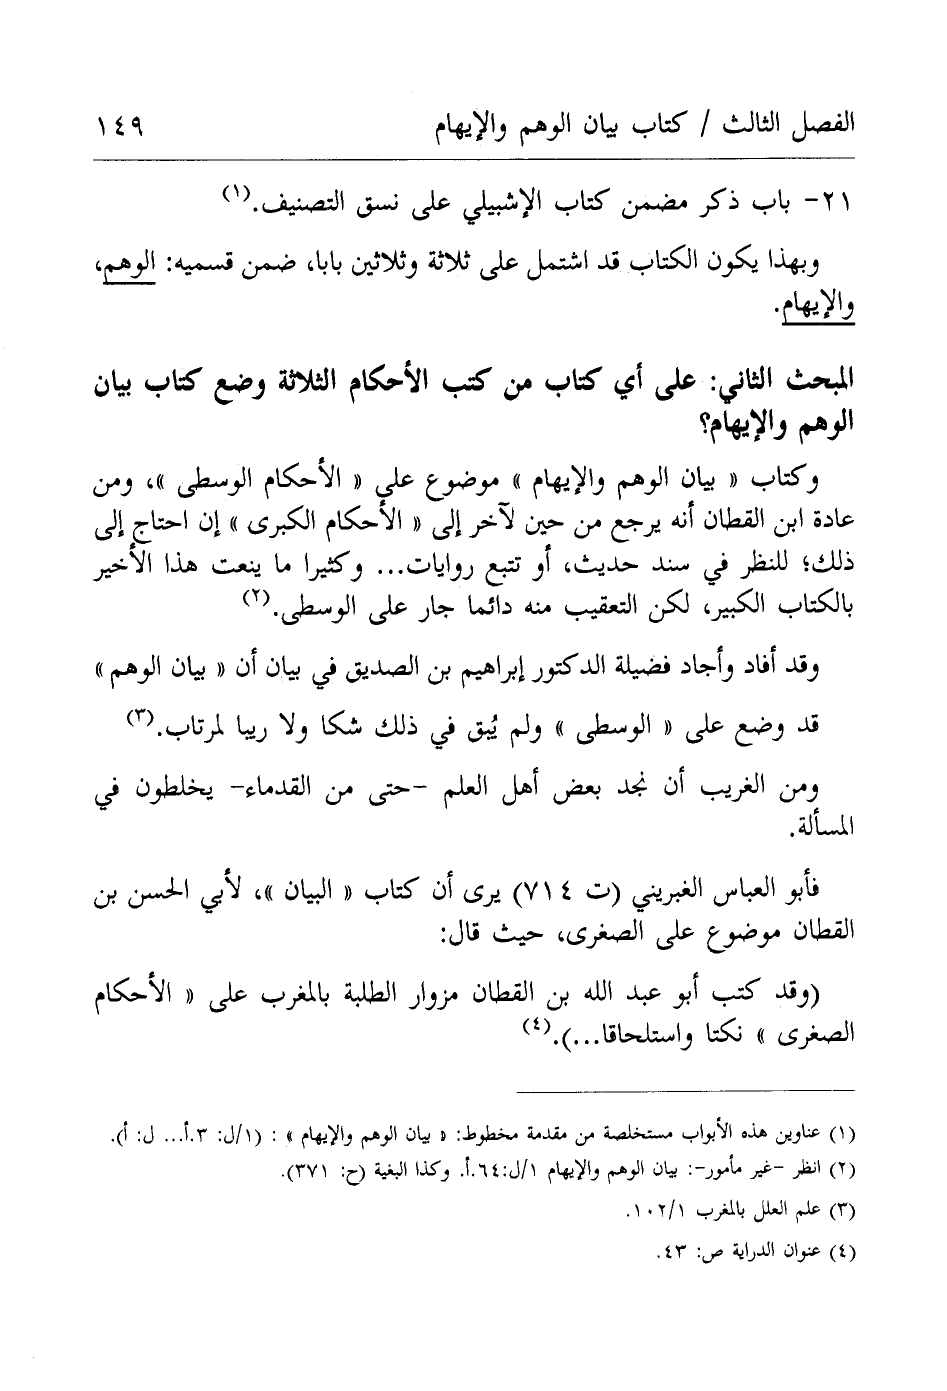 الفصل الثالث / كتاب بيان الوهم والإيهام ١٤٩
٢١- باب ذكر مضمن كتاب الإشبيلي على نسق التصنيف.(١)
وبهذا يكون الكتاب قد اشتمل على ثلاثة وثلاثين بابا، ضمن قسميه: الوهم،
والإيهام.
المبحث الثاني: على أي كتاب من كتب الأحكام الثلاثة وضع كتاب بيان
الوهم والإيهام؟
وكتاب « بيان الوهم والإيهام » موضوع على « الأحكام الوسطى »، ومن
عادة ابن القطان أنه يرجع من حين لآخر إلى « الأحكام الكبرى » إن احتاج إلى
ذلك؛ للنظر في سند حديث، أو تتبع روايات... وكثيرا ما ينعت هذا الأخير
بالكتاب الكبير، لكن التعقيب منه دائما جار على الوسطى.(٢)
وقد أفاد وأجاد فضيلة الدكتور إبراهيم بن الصديق في بيان أن « بيان الوهم »
قد وضع على « الوسطى » ولم يُبق في ذلك شكا ولا ريبا لمرتاب.(٣)
ومن الغريب أن نجد بعض أهل العلم -حتى من القدماء- يخلطون في
المسألة.
فأبو العباس الغبريني (ت ٧١٤) يرى أن كتاب « البيان »، لأبي الحسن بن
القطان موضوع على الصغرى، حيث قال:
(وقد كتب أبو عبد الله بن القطان مزوار الطلبة بالمغرب على « الأحكام
الصغرى » نكتا واستلحاقا...).(٤)
(١) عناوين هذه الأبواب مستخلصة من مقدمة مخطوط: « بيان الوهم والإيهام » : (١/ل: ٣.أ... ل: أ).
(٢) انظر -غير مأمور-: بيان الوهم والإيهام ١/ل:٦٤.أ. وكذا البغية (ح: ٣٧١).
(٣) علم العلل بالمغرب ١/١٠٢.
(٤) عنوان الدراية ص: ٤٣.